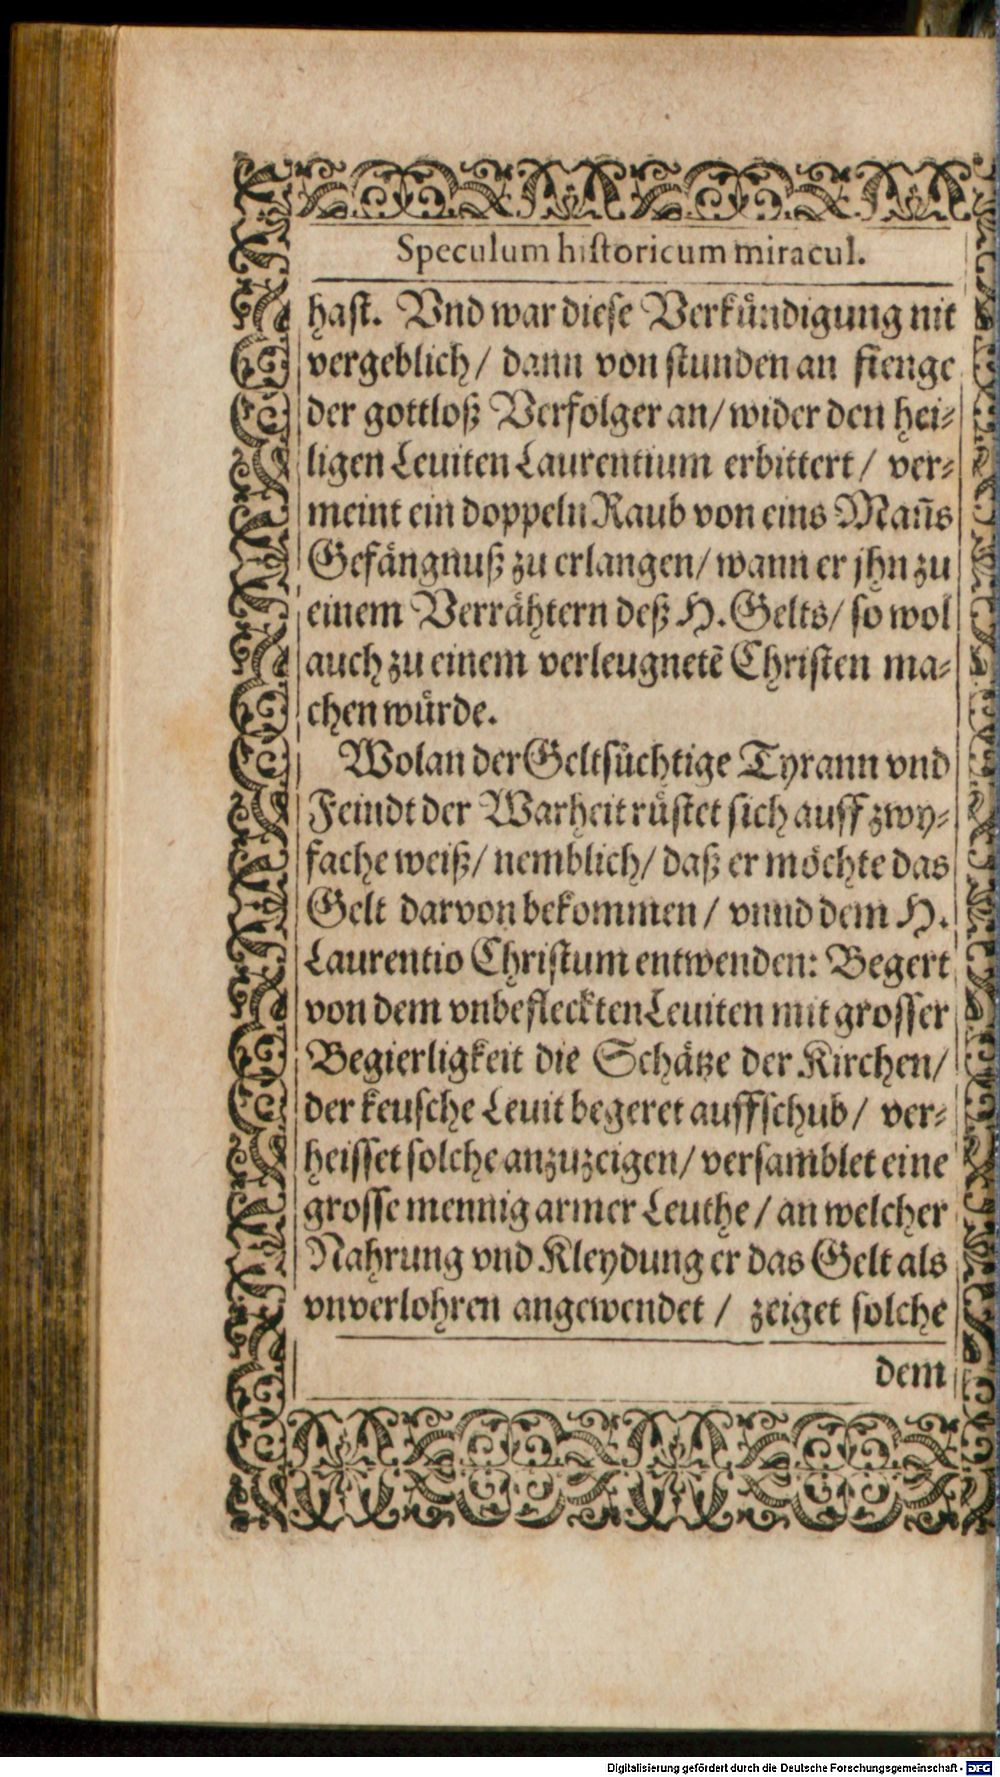 Speculum historicum miracul.
hast. Vnd war diese Verkündigung nit
vergeblich/ dann von stunden an fienge
der gottloß Verfolger an/ wider den hei-
ligen Leuiten Laurentium erbittert/ ver-
meint ein doppeln Raub von eins Mañs
Gefängnuß zu erlangen/ wann er jhn zu
einem Verrähtern deß H. Gelts/ so wol
auch zu einem verleugnetẽ Christen ma-
chen würde.
Wolan der Geltsüchtige Tyrann vnd
Feindt der Warheit rüstet sich auff zwy-
fache weiß/ nemblich/ daß er möchte das
Gelt darvon bekommen/ vnnd dem H.
Laurentio Christum entwenden: Begert
von dem vnbefleckten Leuiten mit grosser
Begierligkeit die Schätze der Kirchen/
der keusche Leuit begeret auffschub/ ver-
heisset solche anzuzeigen/ versamblet eine
grosse mennig armer Leuthe/ an welcher
Nahrung vnd Kleydung er das Gelt als
vnverlohren angewendet/ zeiget solche
dem
Digitalisierung gefördert durch die Deutsche Forschungsgemeinschaft - DFG